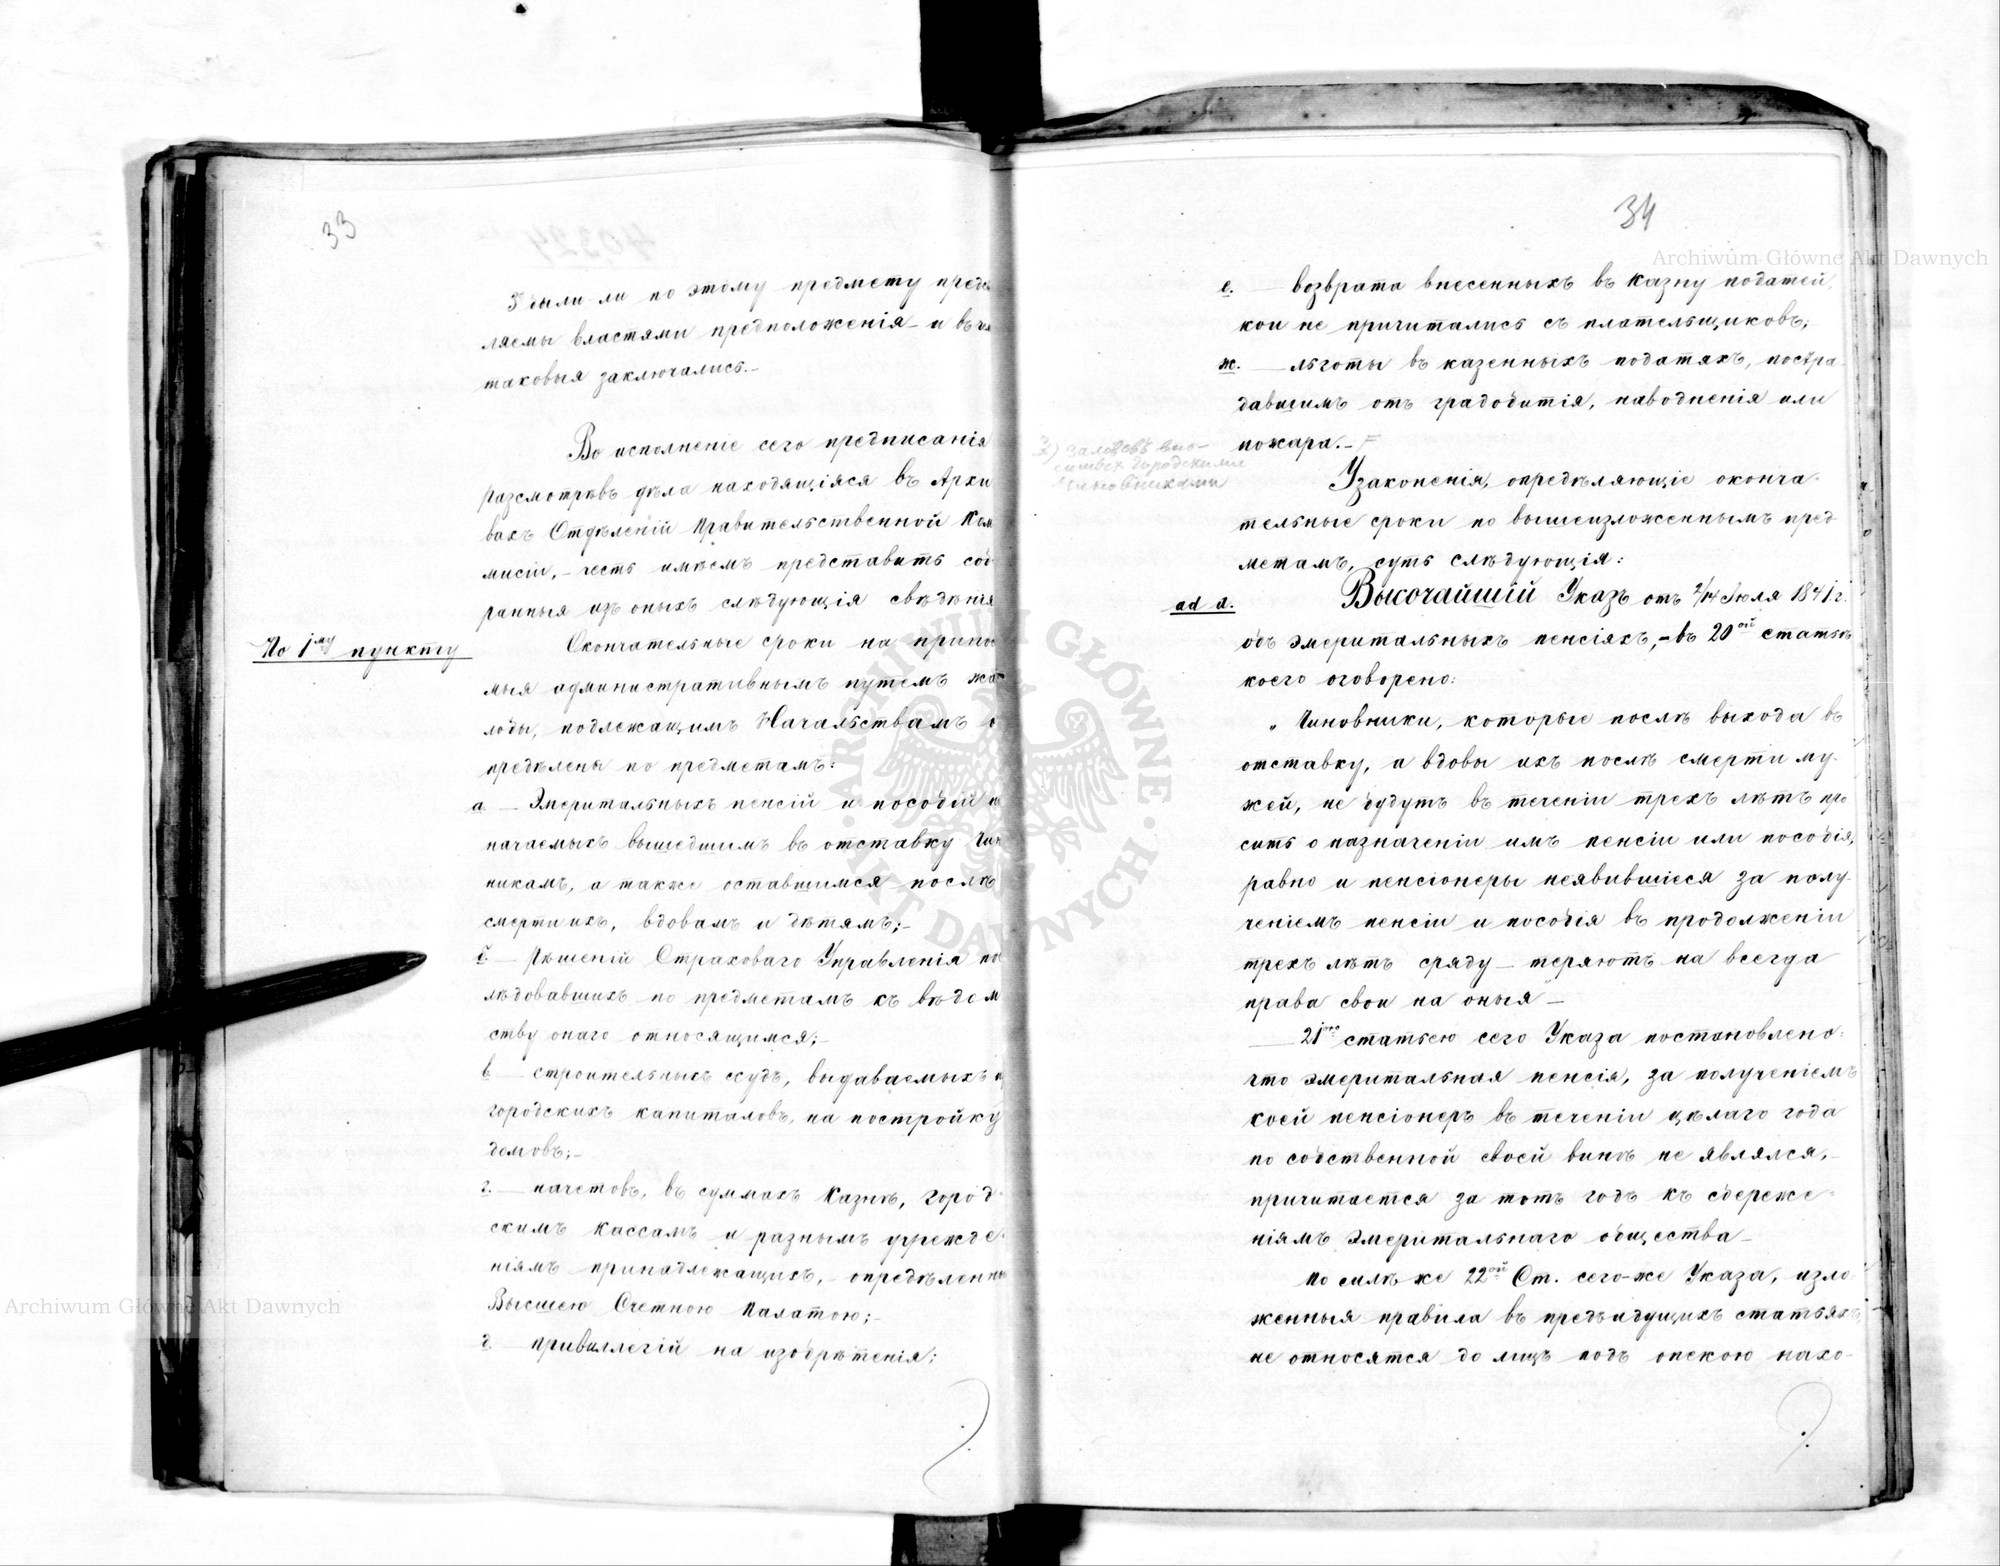 33
были-ли по этому предмету предс
ляемы властями предположенія и въ че
таковыя заключались.-
Во исполненіе сего предписанія
разсмотрѣвъ дѣла находящіяся въ Архи
вахъ Отдѣленій Правительственной Ком
мисіи,- честь имѣемъ представить соб
ранныя изъ оныхъ слѣдующія свѣдѣнія
По 1му пункту
Окончательные сроки на принос
мыя административнымъ путемъ жа
лобы, подлежащимъ Начальствамъ о
предѣлены по предметамъ:
а. — Эмеритальныхъ пенсій и пособій н
начаемыхъ вышедшимъ въ отставку Чин
никамъ, а также оставшимся послѣ
смерти ихъ, вдовамъ и дѣтямъ;-
б. — Рѣшеній Страховаго Управленія по
лѣдовавшихъ по предметамъ къ вѣдом
ству онаго относящимся;-
в — строительныхъ ссудъ, выдаваемыхъ и
городскихъ капиталовъ, на постройку
домовъ;-
г. — начетовъ, въ суммахъ Казнѣ, город-
скимъ Кассамъ и разнымъ учрежде-
ніямъ принадлежащихъ,- опредѣленны
Высшею Счетною Палатою;-
д. — привиллегій на изобрѣтенія;
34
е. — возврата внесенныхъ въ Казну податей,
кои не причитались съ плательщиковъ;
ж. — льготы въ казенныхъ податяхъ, постра-
давшимъ отъ градобитія, наводненія или
пожара.-
3)
городскими
Узаконенія, опредѣляющіе оконча-
тельные сроки по вышеизложеннымъ пред
метамъ, суть слѣдующія:
ad а.
Высочайшій Указъ отъ 2/14 Іюля 1841 г.
объ эмеритальныхъ пенсіяхъ,- въ 20ой статьѣ
коего оговорено:
„ Чиновники, которые послѣ выхода въ
отставку, а вдовы ихъ послѣ смерти му-
жей, не будутъ въ теченіи трехъ лѣтъ про
сить о назначеніи имъ пенсіи или пособія,
равно и пенсіонеры неявившіеся за полу-
ченіемъ пенсіи и пособія въ продолженіи
трехъ лѣтъ сряду — теряютъ на всегда
права свои на оныя —
— 21ою статьею сего Указа постановлено:
что эмеритальная пенсія, за полученіемъ
коей пенсіонеръ въ теченіи цѣлаго года
по собственной своей винѣ не являлся,-
причитается за тотъ годъ къ сбереже-
ніямъ эмеритальнаго общества —
По силѣ же 22ой Ст. сего-же Указа, изло-
женныя правила въ предъидущихъ статьяхъ
не относятся до лицъ подъ опекою нахо-
Archiwum Główne Akt Dawnych
Archiwum Główne Akt Dawnych
ARCHIWUM GŁÓWNE AKT DAWNYCH